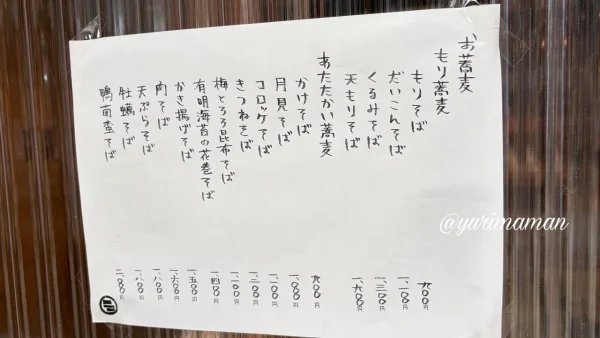 お蕎麦
もり蕎麦
もりそば 九〇〇円
だいこんそば 一、一〇〇円
くるみそば 一、三〇〇円
天もりそば 一、九〇〇円
あたたかい蕎麦
かけそば 九〇〇円
月見そば 一、〇〇〇円
コロッケそば
きつねそば
梅とろろ昆布そば
有明海苔の花巻そば 一、四〇〇円
かき揚げそば 一、五〇〇円
肉そば 一、六〇〇円
天ぷらそば 一、八〇〇円
牡蠣そば 一、八〇〇円
鴨南蛮そば
@yurimaman